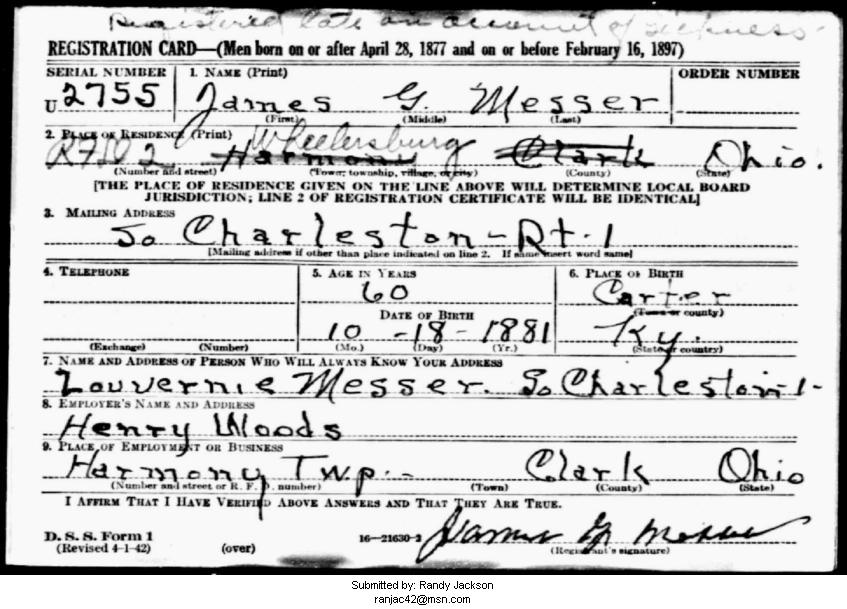 Registered late on account of sickness
REGISTRATION CARD—(Men born on or after April 28, 1877 and on or before February 16, 1897)
SERIAL NUMBER 1. NAME (Print) ORDER NUMBER
U 2755 James G. Messer
(First) (Middle) (Last)
2. PLACE OF RESIDENCE (Print)
RFD 2 Harmony Wheelersburg Clark Ohio.
(Number and street) (Town, township, village, or city) (County) (State)
[THE PLACE OF RESIDENCE GIVEN ON THE LINE ABOVE WILL DETERMINE LOCAL BOARD
JURISDICTION; LINE 2 OF REGISTRATION CERTIFICATE WILL BE IDENTICAL]
3. MAILING ADDRESS
So Charleston - Rt. 1
[Mailing address if other than place indicated on line 2. If same insert word same]
4. TELEPHONE 5. AGE IN YEARS 6. PLACE OF BIRTH
60 Carter
DATE OF BIRTH (Town or county)
10 - 18 - 1881 Ky.
(Exchange) (Number) (Mo.) (Day) (Yr.) (State or country)
7. NAME AND ADDRESS OF PERSON WHO WILL ALWAYS KNOW YOUR ADDRESS
Louvernie Messer. So Charleston-1-
8. EMPLOYER'S NAME AND ADDRESS
Henry Woods
9. PLACE OF EMPLOYMENT OR BUSINESS
Harmony Twp. - Clark Ohio
(Number and street or R. F. D. number) (Town) (County) (State)
I AFFIRM THAT I HAVE VERIFIED ABOVE ANSWERS AND THAT THEY ARE TRUE.
D. S. S. Form 1
(Revised 4-1-42) (over) 16—21630-2 James G. Messer
(Registrant's signature)
Submitted by: Randy Jackson
ranjac42@msn.com